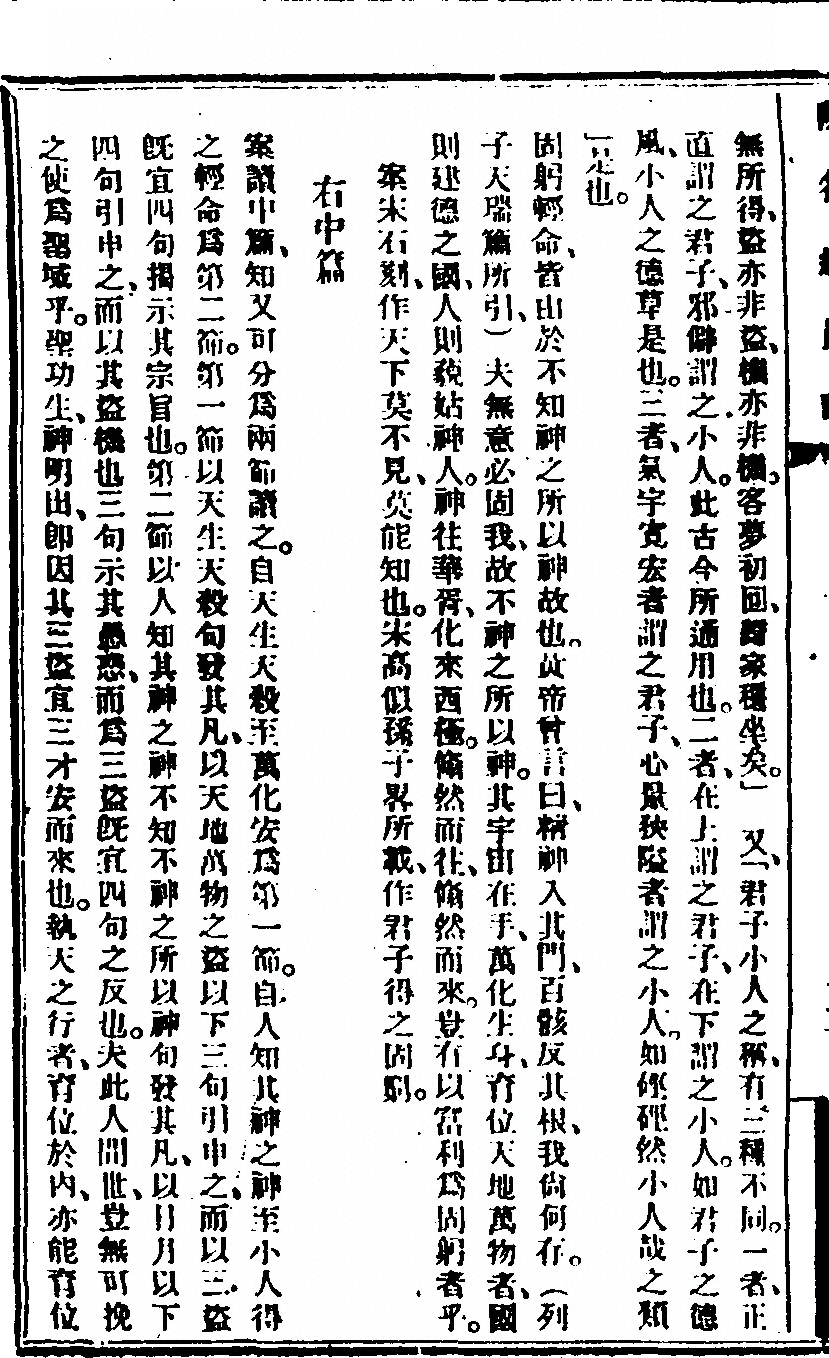 無所得、盜亦非盜、機亦非機。客夢初回、歸家穩坐矣。」又、「君子小人之稱、有三種不同。一者、正
直謂之君子、邪僻謂之小人。此古今所通用也。二者、在上謂之君子、在下謂之小人。如君子之德
風、小人之德草是也。三者、氣宇寬宏者謂之君子、心量狹隘者謂之小人。如硜硜然小人哉之類
」是也。
固躬輕命、皆由於不知神之所以神故也。故帝曾言曰、精神入其門、百骸反其根、我尙何存。(列
子天瑞篇所引、)夫無意必固我、故不神之所以神。其宇宙在手、萬化生身、育位天地萬物者、國
則建德之國、人則藐姑神人。神往華胥、化來西極。翛然而往、翛然而來。豈有以富利爲固躬者乎。
案宋石刻、作天下莫不見、莫能知也。宋高似孫子畧所載、作君子得之固窮。
右中篇
案讀中篇、知又可分爲兩節讀之。自天生天殺至萬化安爲第一節。自人知其神之神至小人得
之輕命爲第二節。第一節以天生天殺句發其凡、以天地萬物之盜以下三句引申之、而以三盜
旣宜四句揭示其宗旨也。第二節以人知其神之神不知不神之所以神句發其凡、以日月以下
四句引申之、而以其盜機也三句示其愚惑、而爲三盜旣宜四句之反也。夫此人間世、豈無可挽
之使爲聖域乎。聖功生、神明出、卽因其三盜宜三才安而來也。執天之行者、育位於內、亦能育位